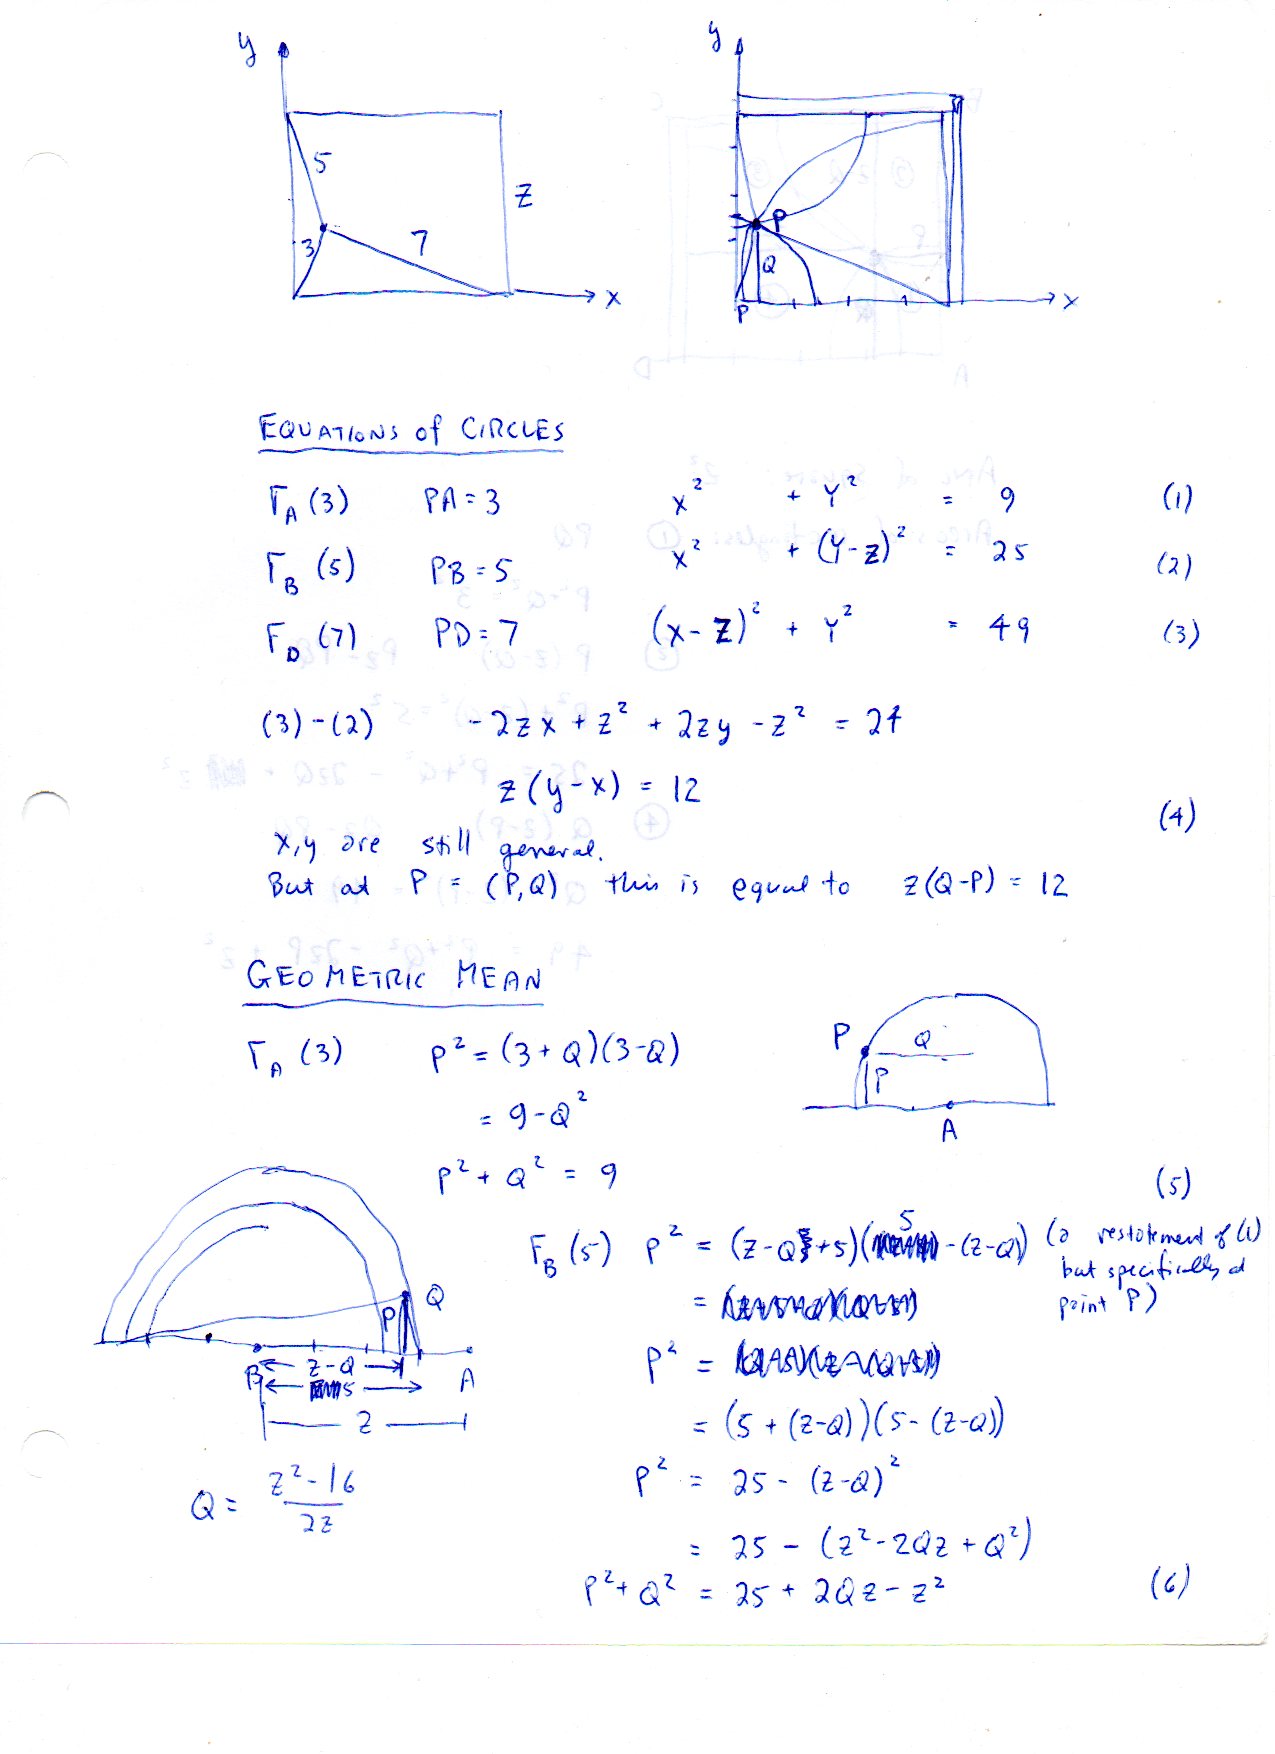 y
y
5
Z
3
7
x
P
Q
P
x
EQUATIONS of CIRCLES
Γ_A (3) PA = 3 x² + Y² = 9 (1)
Γ_B (5) PB = 5 x² + (Y-z)² = 25 (2)
Γ_D (7) PD = 7 (x-z)² + Y² = 49 (3)
(3)-(2) -2zx + z² + 2zy - z² = 24
z(y-x) = 12
(4)
x,y are still general.
But at P = (P,Q) this is equal to z(Q-P) = 12
GEOMETRIC MEAN
Γ_A (3) P² = (3+Q)(3-Q)
= 9-Q²
P² + Q² = 9
(5)
P
Q
P
A
(a restatement of (1)
but specifically at
point P)
Γ_B (5) P² = (z-Q+5)(5-(z-Q))
=
P² =
= (5+(z-Q))(5-(z-Q))
P² = 25 - (z-Q)²
= 25 - (z²-2Qz+Q²)
P²+Q² = 25 + 2Qz - z² (6)
Q
P
B
z-Q
A
5
z
Q = z²-16 / 2z